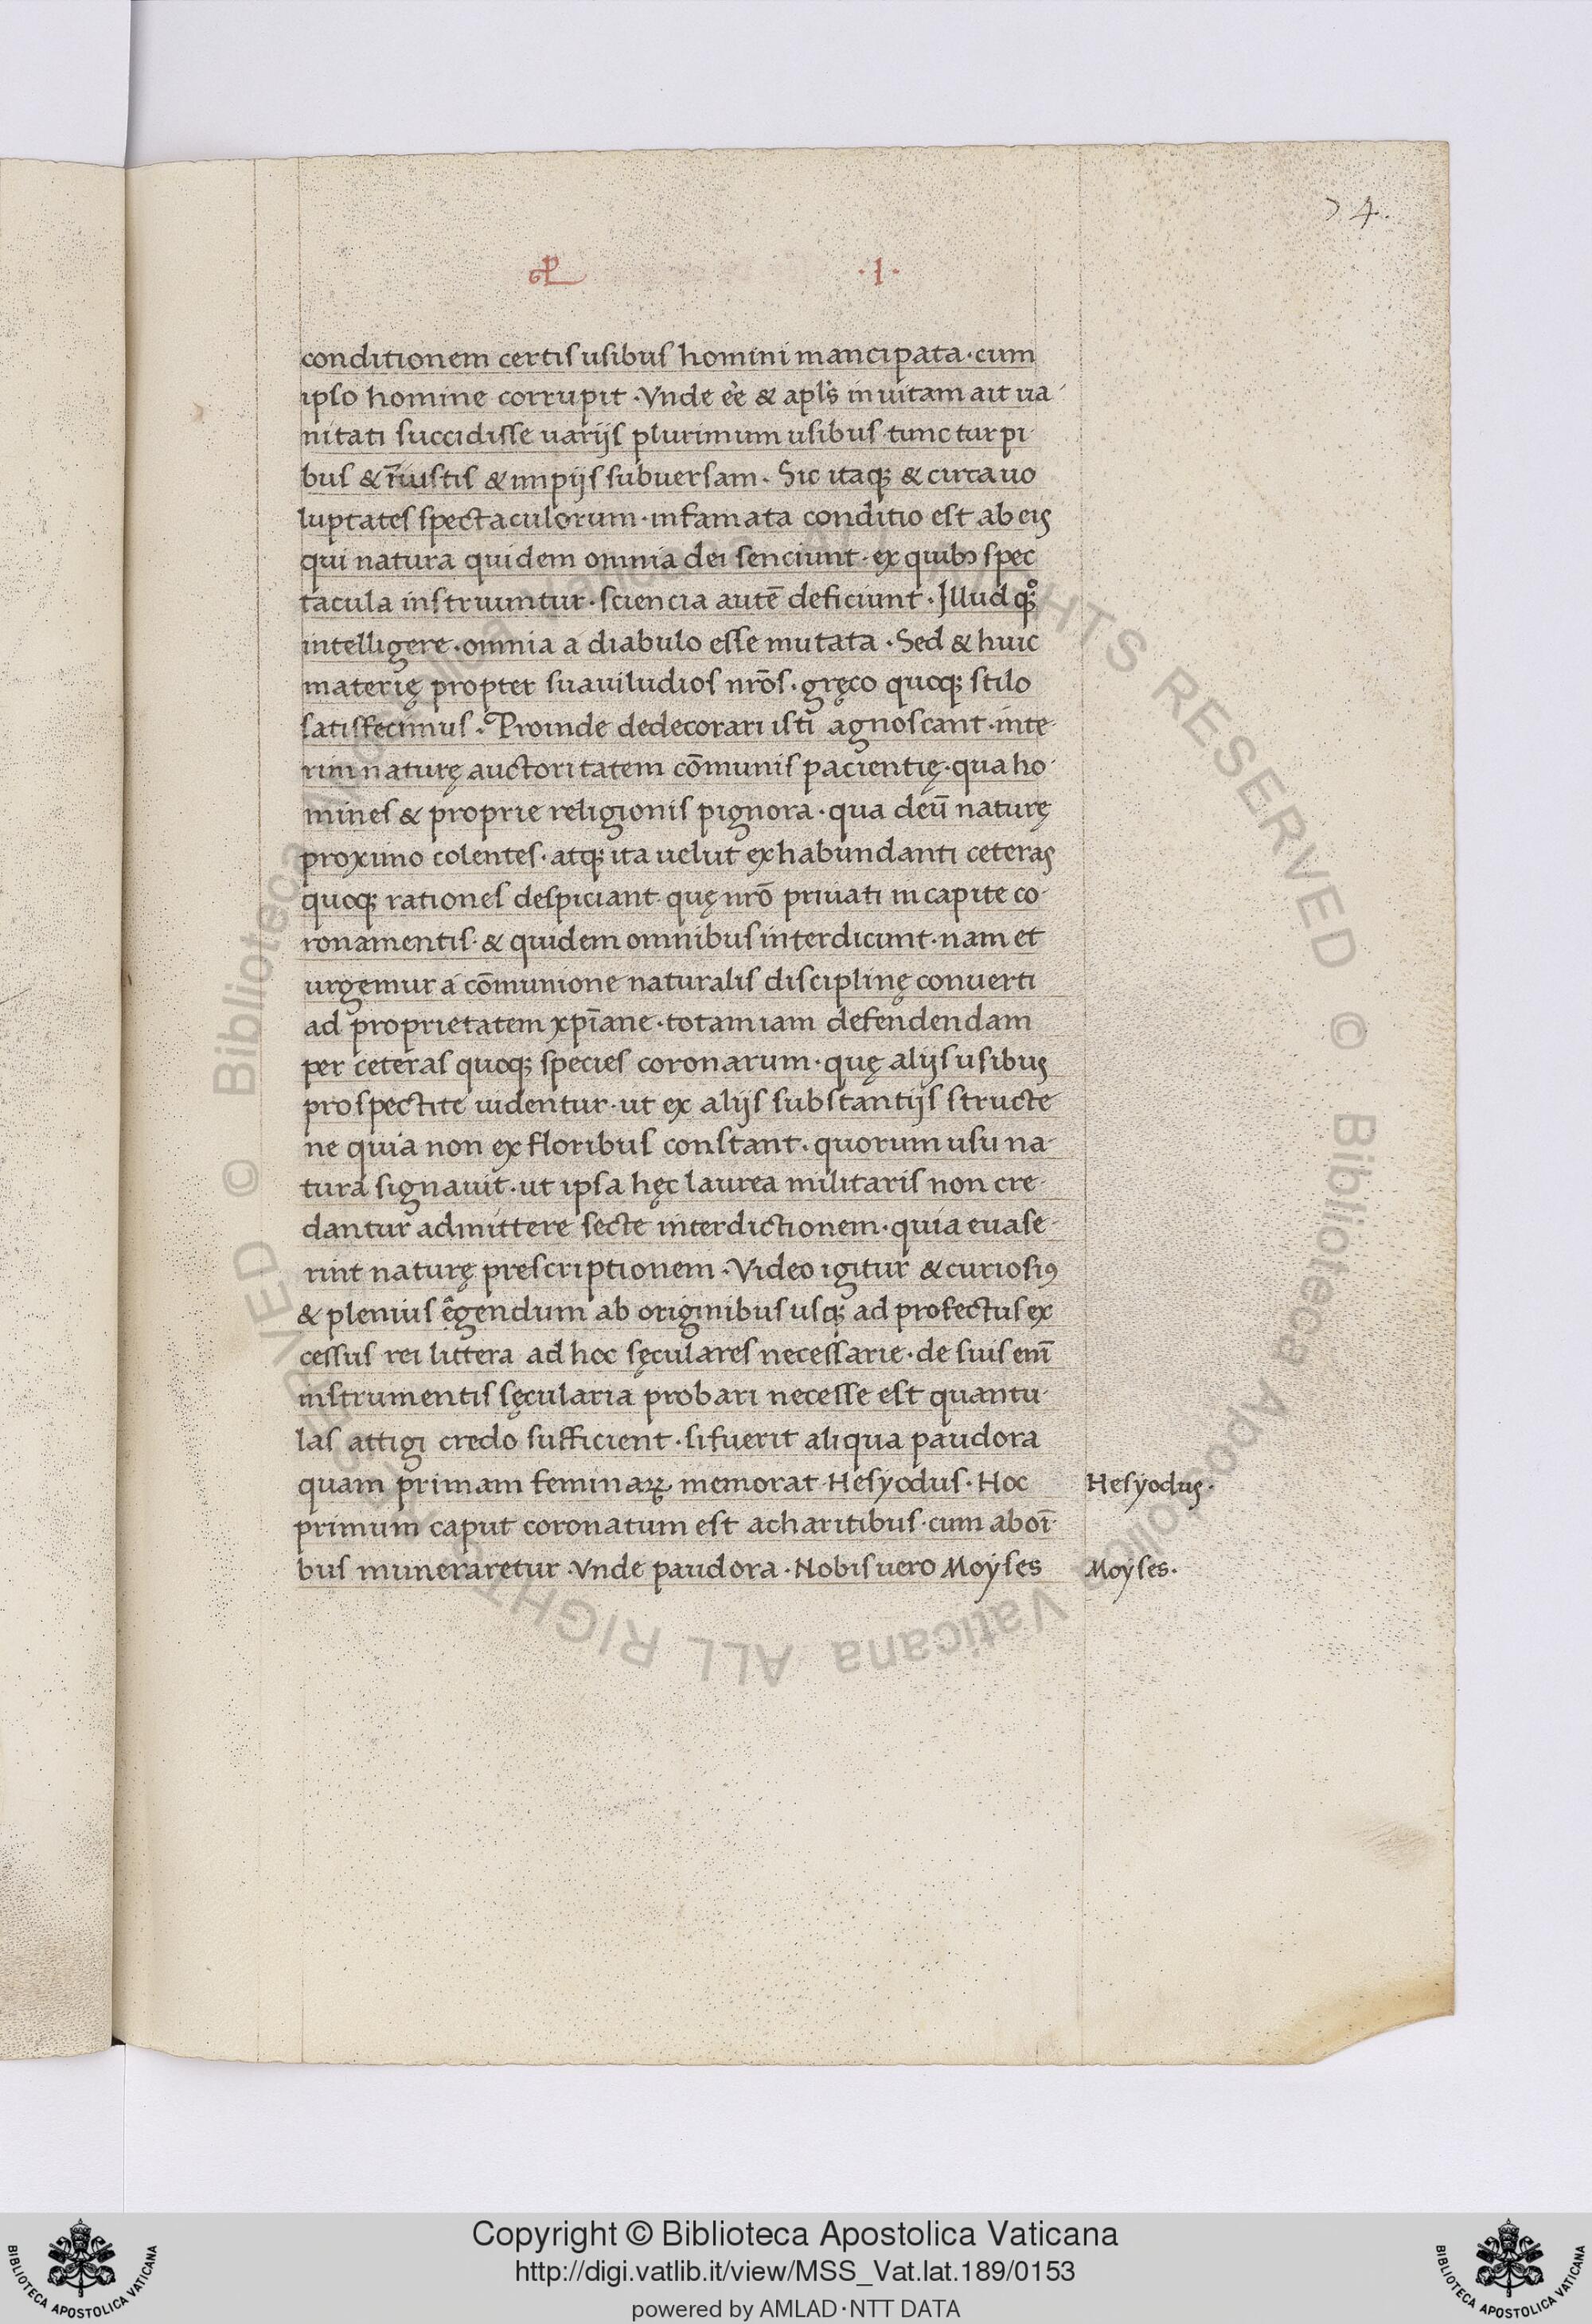 74.
·I·
conditionem certis usibus homini mancipata · cum
ipso homine corrupit · Vnde ẽe & apl's inuitam ait ua-
nitati succidisse uarijs plurimum usibus tunc turpi-
bus & iustis & impijs subuersam · Sic itaq; & circa uo
luptates spectaculorum · infamata conditio est ab eis
qui natura quidem omnia dei senciunt · ex quibꝰ spec
tacula instruuntur · sciencia autē deficiunt · Illud q;
intelligere · omnia a diabulo esse mutata · Sed & huic
materię propter suauiludios nrōs · gręco quoq; stilo
satisfecimus · Proinde dedecorari isti agnoscant · inte-
rim naturę auctoritatem cōmunis pacientię · qua ho-
mines & proprie religionis pignora · qua deū naturę
proximo colentes · atq; ita uelut exhabundanti ceteras
quoq; rationes despiciant quę nrō priuati in capite co-
ronamentis · & quidem omnibus interdicunt · nam et
urgemur a cōmunione naturalis disciplinę conuerti
ad proprietatem xp̄iane · totam iam defendendam
per ceteras quoq; species coronarum · quę alijs usibus
prospectite uidentur · ut ex alijs substantijs structe
ne quia non ex floribus constant · quorum usu na-
tura signauit · ut ipsa hęc laurea militaris non cre-
dantur admittere secte interdictionem · quia euase-
rint naturę prescriptionem · Video igitur & curiosiꝰ
& plenius ęgendum ab originibus usq; ad profectus ex
cessus rei littera ad hoc sęculares necessarie · de suis enī
instrumentis sęcularia probari necesse est quantu-
las attigi credo sufficient · si fuerit aliqua paudora
quam primam feminaꝝ memorat Hesyodus · Hoc
Hesyodus ·
primum caput coronatum est acharitibus · cum aboī-
bus muneraretur · Vnde paudora · Nobis uero Moyses
Moyses ·
© Biblioteca Apostolica Vaticana ALL RIGHTS RESERVED © Biblioteca Apostolica Vaticana ALL RIGHTS RESERVED
Copyright © Biblioteca Apostolica Vaticana
http://digi.vatlib.it/view/MSS_Vat.lat.189/0153
powered by AMLAD·NTT DATA
BIBLIOTECA APOSTOLICA VATICANA
BIBLIOTECA APOSTOLICA VATICANA